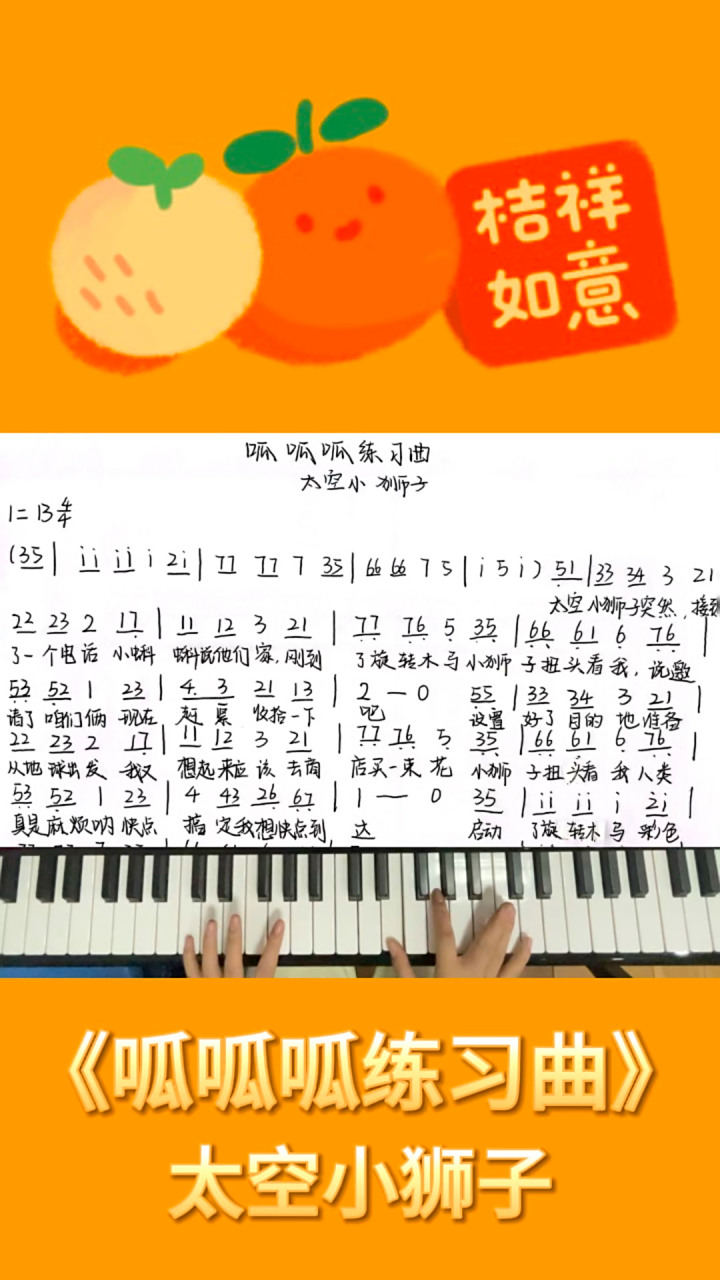 桔祥
如意
呱呱呱练习曲
太空小狮子
1=B 4/4
(35 | ii ii i 2i | 77 77 7 35 | 66 66 7 5 | i 5 i) 51 | 33 34 3 21
太空小狮子突然,接到
22 23 2 17 | 11 12 3 21 | 77 76 5 35 | 66 61 6 76 |
了一个电话 小蝌 蝌说他们家,刚到 了旋转木马小狮 子扭头看我,说邀
53 52 1 23 | 4 3 21 13 | 2 — 0 55 | 33 34 3 21 |
请了咱们俩 现在 赶紧 收拾一下 吧 设置 好了目的 地准备
22 23 2 17 | 11 12 3 21 | 77 76 5 35 | 66 61 6 76 |
从地球出发 我又 想起来应该 去商 店买一束 花 小狮 子扭头看 我人类
53 52 1 23 | 4 43 26 67 | 1 — 0 35 | ii ii i 2i |
真是麻烦呐 快点 搞定我想快点到 达 启动 了旋转木马 彩色
《呱呱呱练习曲》
太空小狮子